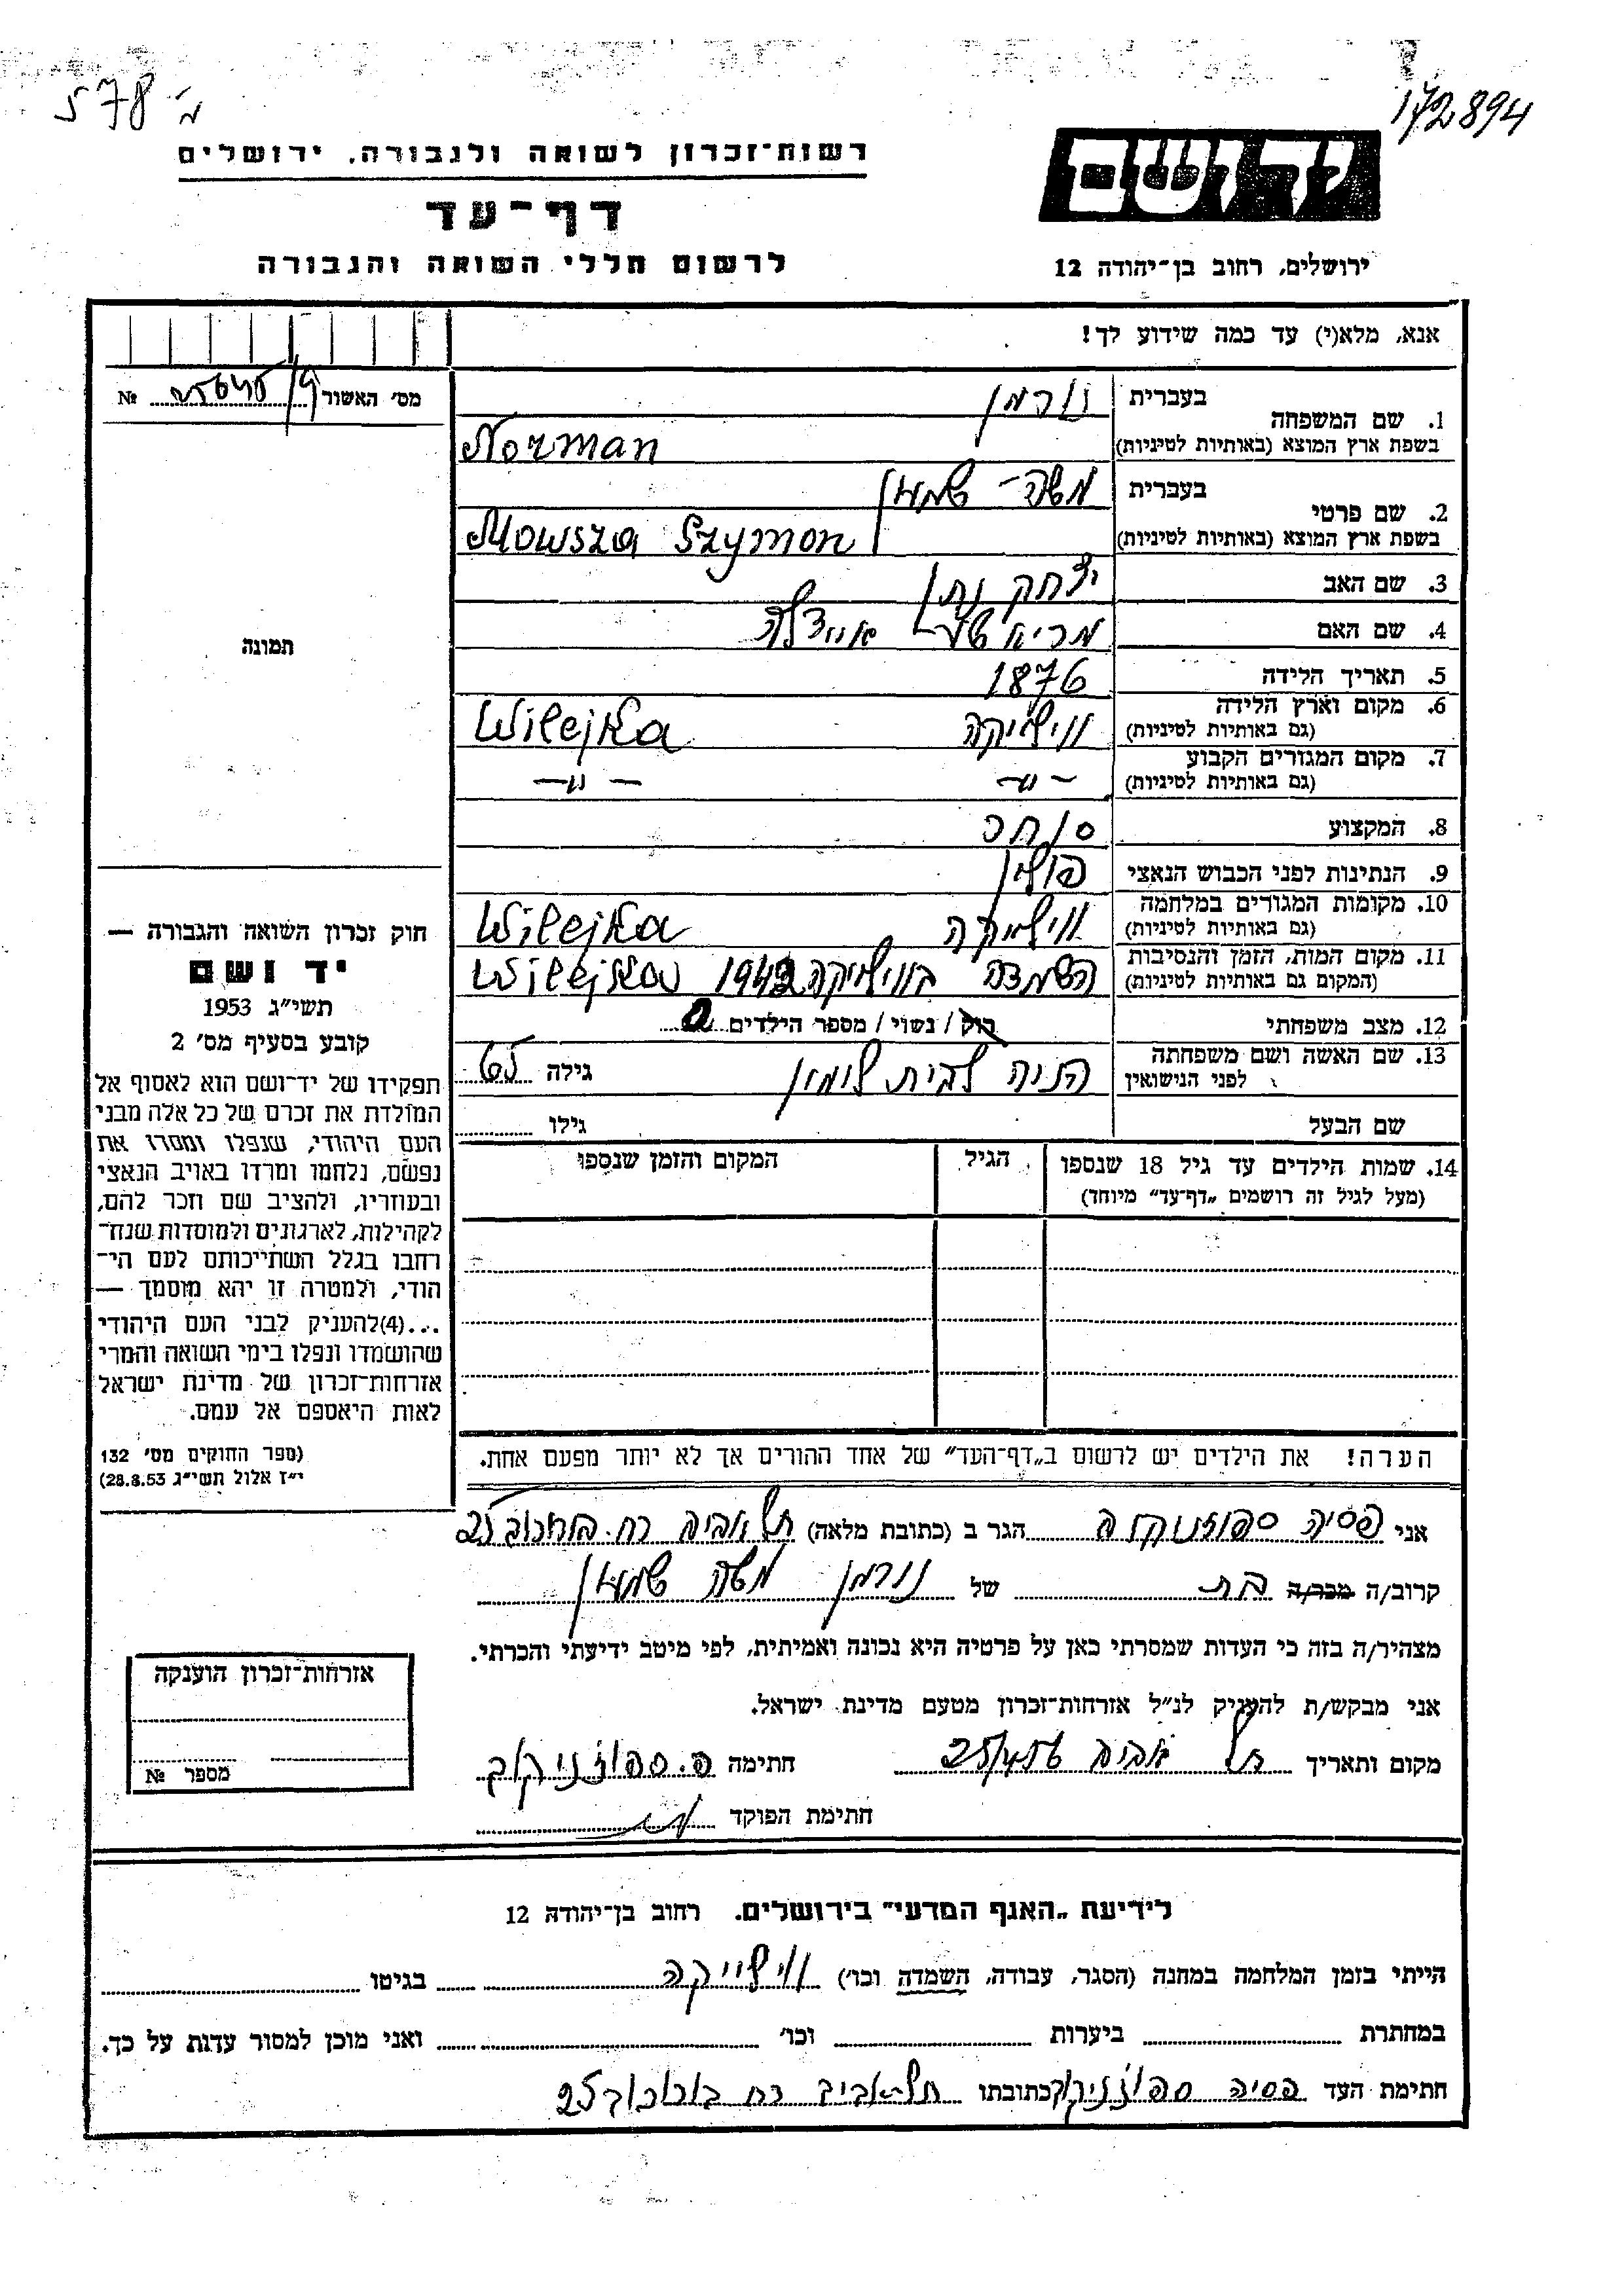 578 מ׳
172894
רשות־זכרון לשואה ולגבורה, ירושלים
יד ושם
דף־עד
לרשום חללי השואה והגבורה
ירושלים, רחוב בן־יהודה 12
אנא, מלא(י) עד כמה שידוע לך!
מס׳ האשור №
1. שם המשפחה
בעברית נורמן
בשפת ארץ המוצא (באותיות לטיניות) Norman
2. שם פרטי
בעברית משה - שמעון
בשפת ארץ המוצא (באותיות לטיניות) Mowsza Szymon
3. שם האב יצחק נתן
4. שם האם
5. תאריך הלידה 1876
6. מקום וארץ הלידה
(גם באותיות לטיניות) ווילייקה Wilejka
7. מקום המגורים הקבוע
(גם באותיות לטיניות) - " - - " -
8. המקצוע סוחר
9. הנתינות לפני הכבוש הנאצי פולין
10. מקומות המגורים במלחמה
(גם באותיות לטיניות) ווילייקה Wilejka
11. מקום המות, הזמן והנסיבות
(המקום גם באותיות לטיניות) השמדה בווילייקה 1942 Wilejka
12. מצב משפחתי רוק / נשוי / מספר הילדים
13. שם האשה ושם משפחתה
לפני הנישואין הניה לבית גילה 65
שם הבעל גילו
14. שמות הילדים עד גיל 18 שנספו
(מעל לגיל זה רושמים „דף־עד״ מיוחד)
הגיל
המקום והזמן שנספו
תמונה
חוק זכרון השואה והגבורה —
יד ושם
תשי״ג 1953
קובע בסעיף מס׳ 2
תפקידו של יד־ושם הוא לאסוף אל
המולדת את זכרם של כל אלה מבני
העם היהודי, שנפלו ומסרו את
נפשם, נלחמו ומרדו באויב הנאצי
ובעוזריו, ולהציב שם וזכר להם,
לקהילות, לארגונים ולמוסדות שנח־
רבו בגלל השתייכותם לעם הי־
הודי, ולמטרה זו יהא מוסמך —
...(4) להעניק לבני העם היהודי
שהושמדו ונפלו בימי השואה והמרי
אזרחות־זכרון של מדינת ישראל
לאות היאספם אל עמם.
(ספר החוקים מס׳ 132
י״ז אלול תשי״ג 28.8.53)
הערה! את הילדים יש לרשום ב„דף־העד״ של אחד ההורים אך לא יותר מפעם אחת.
אני פסיה ספוזניקוב הגר ב (כתובת מלאה) תל אביב רח. בורוכוב 25
קרוב/ה מכר/ה בת של נורמן משה שמעון
מצהיר/ה בזה כי העדות שמסרתי כאן על פרטיה היא נכונה ואמיתית, לפי מיטב ידיעתי והכרתי.
אני מבקש/ת להעניק לנ״ל אזרחות־זכרון מטעם מדינת ישראל.
מקום ותאריך תל אביב חתימה פ. ספוזניקוב
חתימת הפוקד
אזרחות־זכרון הוענקה
מספר №
לידיעת „האגף המדעי״ בירושלים. רחוב בן־יהודה 12
הייתי בזמן המלחמה במחנה (הסגר, עבודה, השמדה וכו׳) ווילייקה בגיטו
במחתרת ביערות וכו׳ ואני מוכן למסור עדות על כך.
חתימת העד פסיה ספוזניקוב כתובתו תל־אביב רח בורוכוב 25